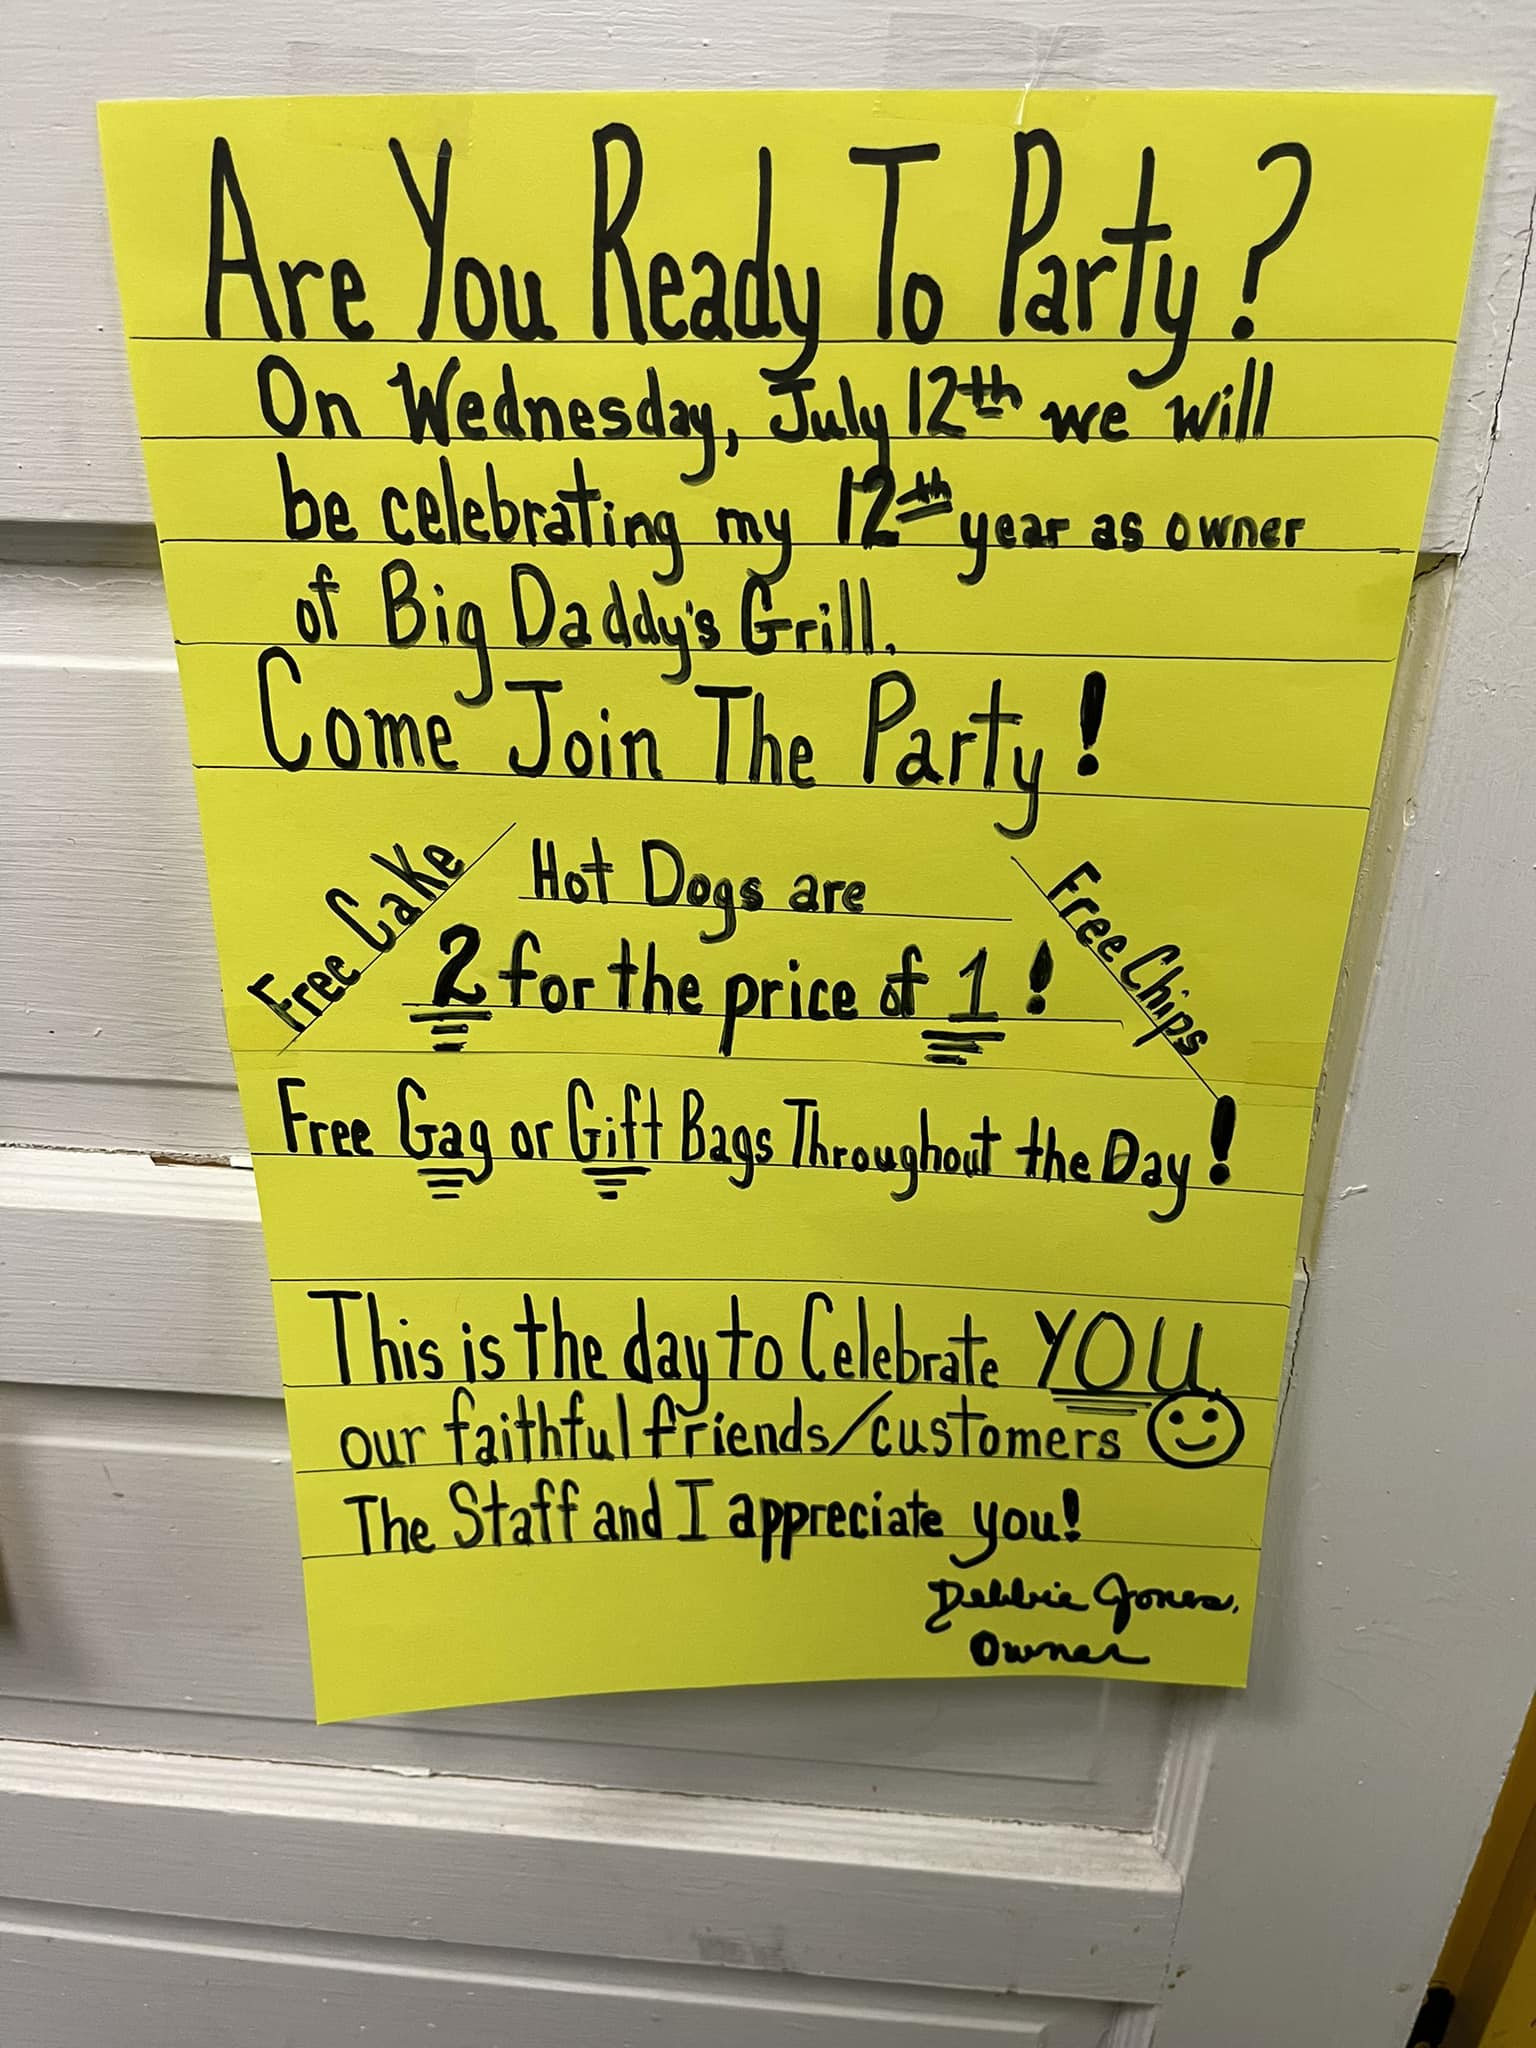 Are You Ready To Party?
On Wednesday, July 12th we will
be celebrating my 12th year as owner
of Big Daddy's Grill.
Come Join The Party!
Free Cake
Hot Dogs are
2 for the price of 1!
Free Chips
Free Gag or Gift Bags Throughout the Day!
This is the day to Celebrate YOU,
our faithful friends/customers
The Staff and I appreciate you!
Debbie Jones,
Owner